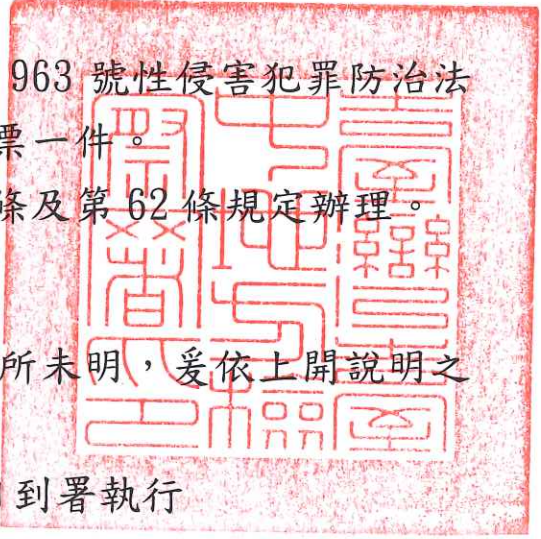 963 號性侵害犯罪防治法
票一件。
條及第 62 條規定辦理。
所未明，爰依上開說明之
到署執行